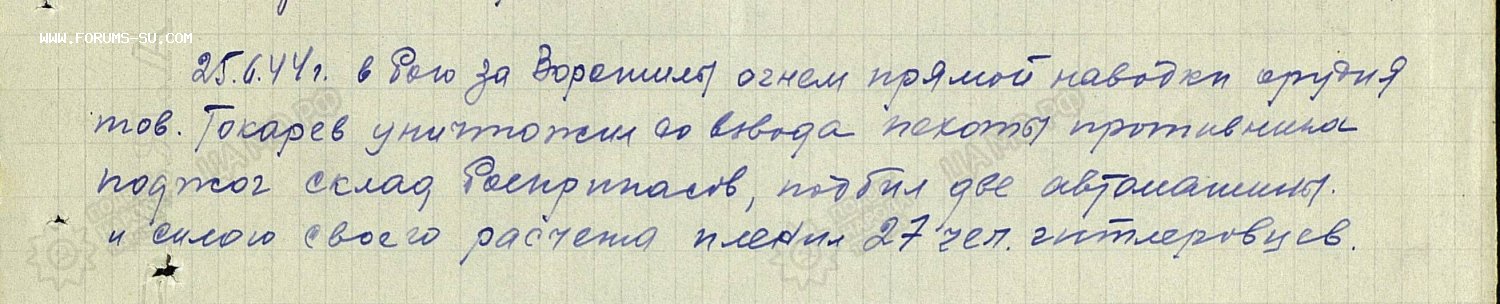 WWW.FORUMS-SU.COM
25.6.44г. в бою за Ворошилы огнем прямой наводки орудия
тов. Токарев уничтожил до взвода пехоты противника
поджог склад боеприпасов, подбил две автомашины.
и силою своего расчета пленил 27 чел. гитлеровцев.